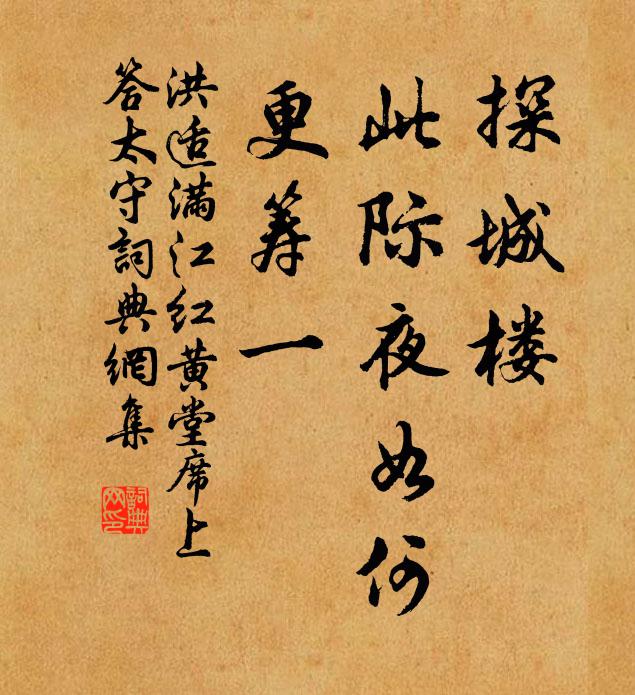 探城楼
此际夜如何
更筹一
洪适满江红黄堂席上
答太守詞典網集
詞典网印